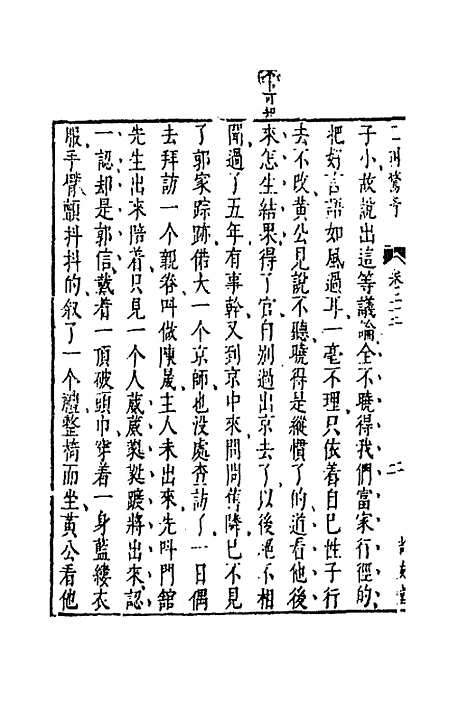 不可知
二刻驚奇 卷二十二 二 尚友堂
子小故說出這等議論全不曉得我們富家行徑的
把好言語如風過耳一毫不理只依着自巳性子行
去不改黃公見說不聽曉得是縱慣了的道看他後
來怎生結果得了官自別過出京去了以後絕不相
聞過了五年有事幹又到京中來問問舊隣巳不見
了郭家踪跡偌大一个京師也沒處查訪了一日偶
去拜訪一个親眷呌做陳晟主人未出來先呌門舘
先生出來陪着只見一个人葳葳㽔㽔踱將出來認
一認却是郭信戴着一頂破頭巾穿着一身藍縷衣
服手臂顫抖抖的叙了一个禮整椅而坐黃公看他